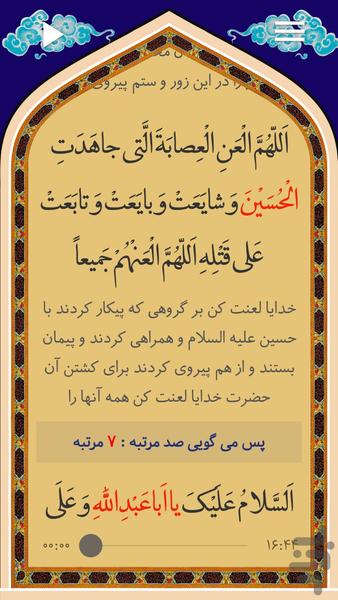 را در این زور و ستم پیروی
اَللّهُمَّ الْعَنِ الْعِصابَةَ الَّتی جاهَدَتِ
الْحُسَیْنَ وَ شایَعَتْ وَ بایَعَتْ وَ تابَعَتْ
عَلی قَتْلِهِ اَللّهُمَّ الْعَنْهُمْ جَمیعاً
خدایا لعنت کن بر گروهی که پیکار کردند با
حسین علیه السلام و همراهی کردند و پیمان
بستند و از هم پیروی کردند برای کشتن آن
حضرت خدایا لعنت کن همه آنها را
پس می گویی صد مرتبه : ۷ مرتبه
اَلسَّلامُ عَلَیْکَ یا اَبا عَبْدِاللّهِ وَ عَلَی
۰۰:۰۰ ۱۶:۴۴